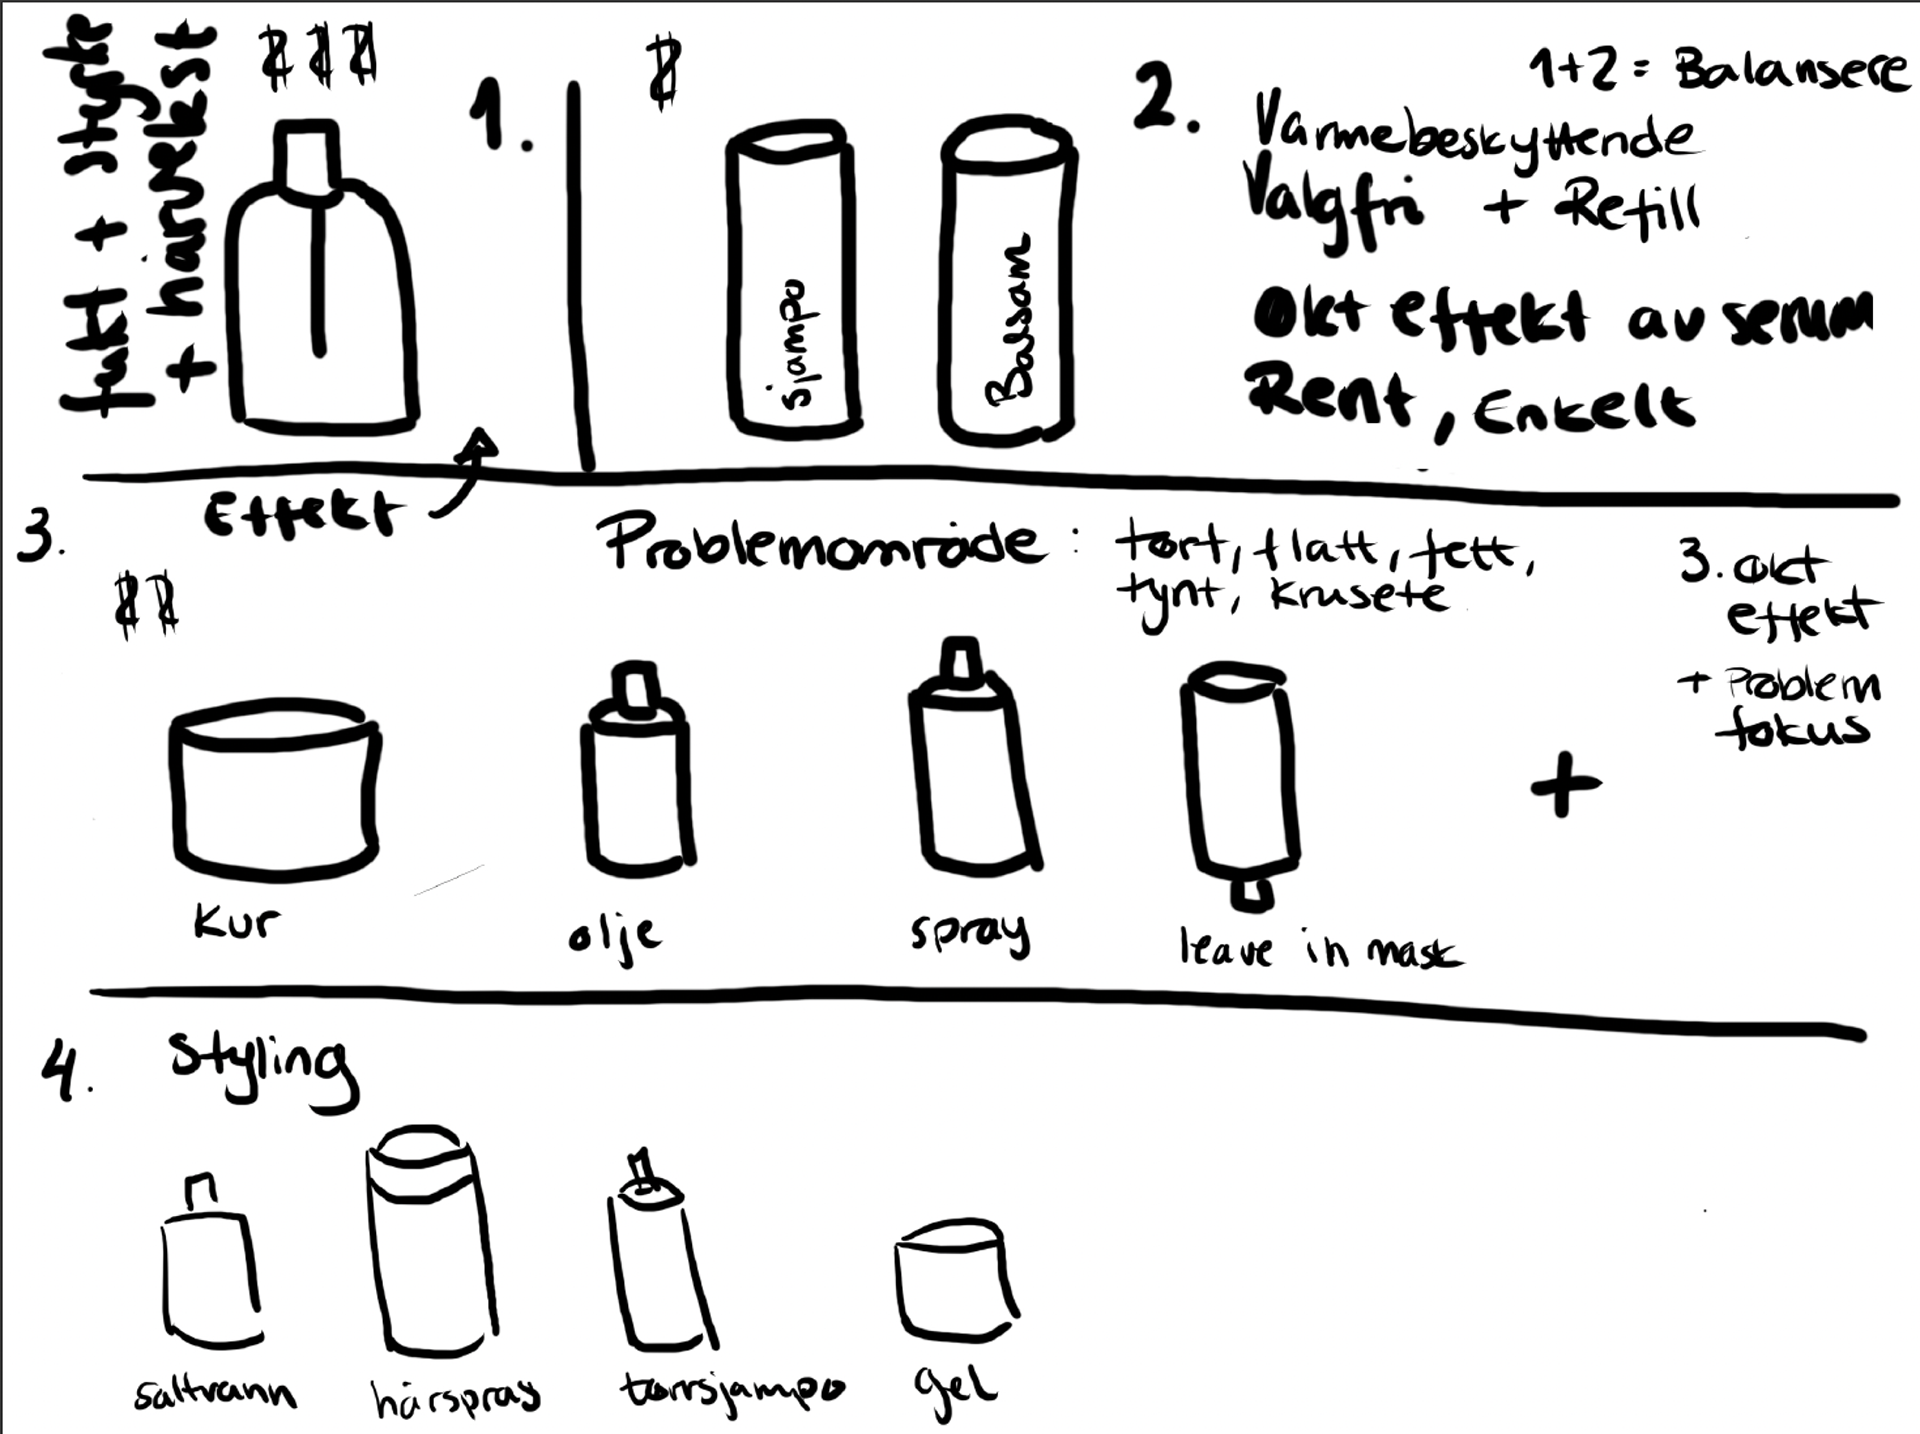 fukt + styrke
+ hårvekst
$$$
1.
Effekt
$
Sjampo
Balsam
2.
1+2 = Balansere
Varmebeskyttende
Valgfri + Refill
Økt effekt av serum
Rent, Enkelt
3.
$$
Problemområde: tørt, flatt, fett,
tynt, krusete
3. økt
effekt
+ Problem
fokus
+
Kur
olje
spray
leave in mask
4. Styling
saltvann
hårspray
tørrsjampo
gel